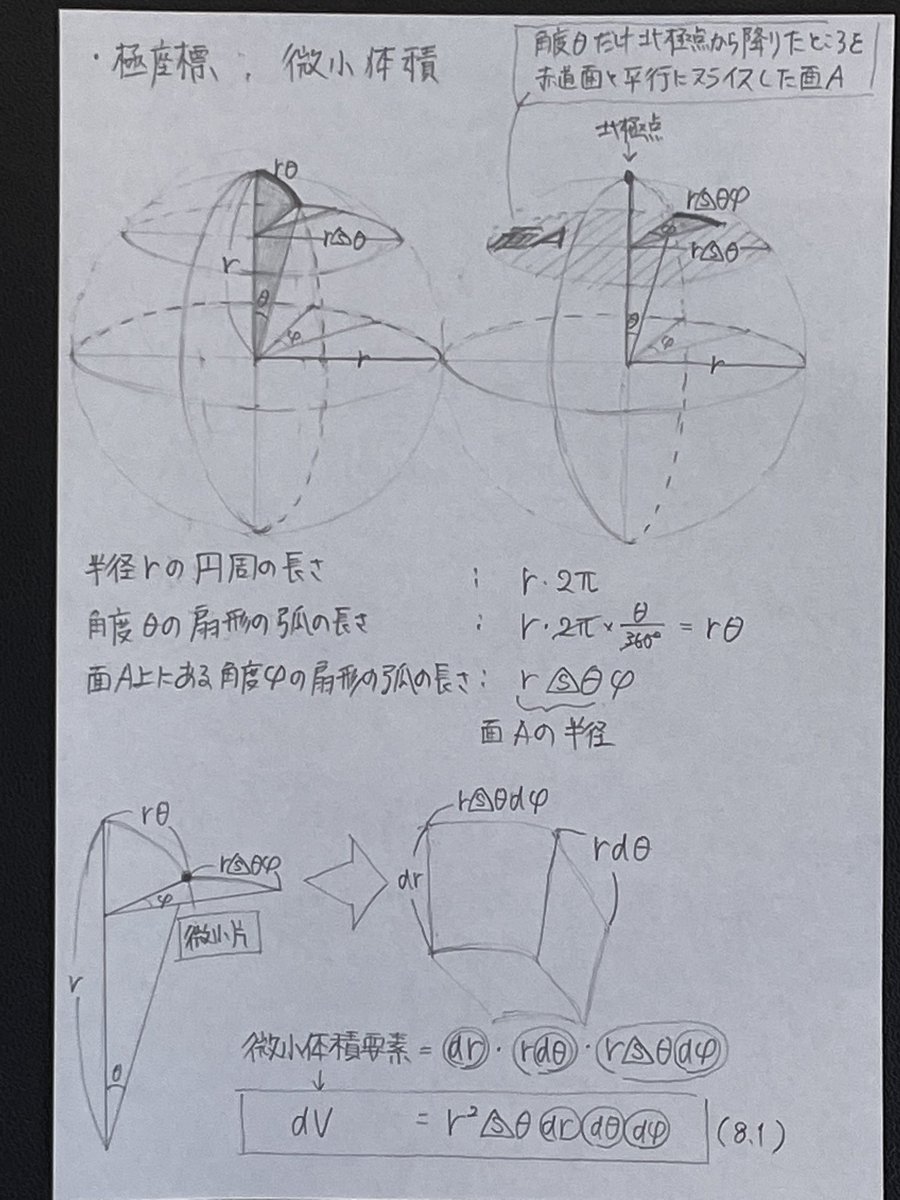 ・極座標：微小体積
角度θだけ北極点から降りたところを
赤道面と平行にスライスした面A
北極点
rθ
r
θ
φ
r
面A
θ
φ
r
半径rの円周の長さ : r・2π
角度θの扇形の弧の長さ : r・2π×θ/360° = rθ
面A上にある角度φの扇形の弧の長さ:
面Aの半径
rθ
φ
微小片
r
θ
dr
rdθ
微小体積要素 = dr・rdθ・
dV = r² θ dr dθ dφ (8.1)